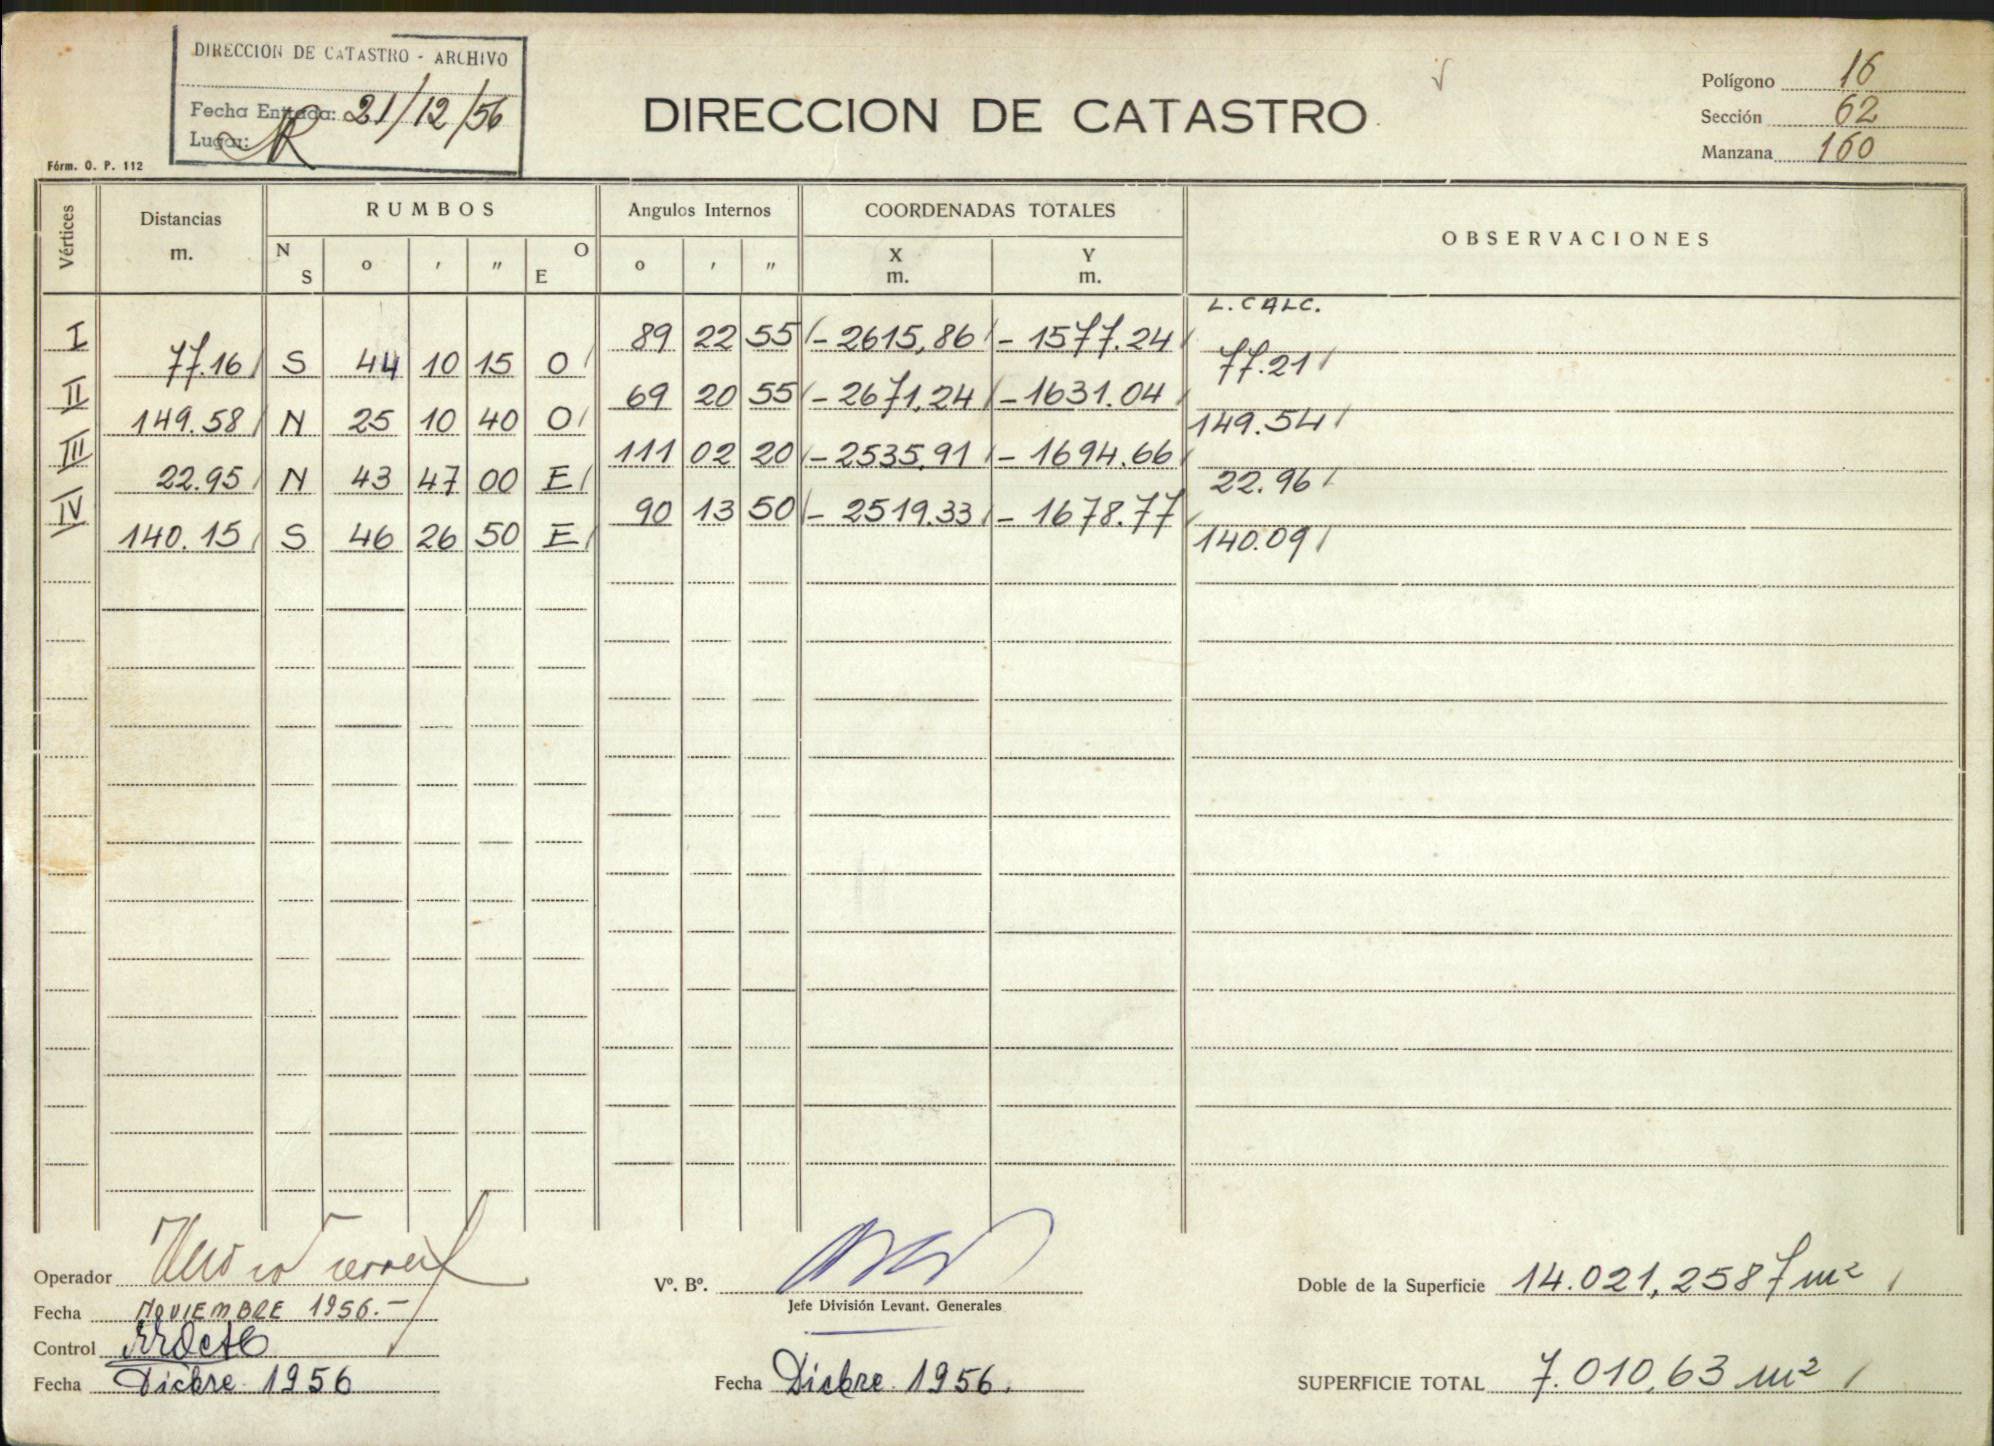 DIRECCION DE CATASTRO - ARCHIVO
Fecha Entrada: 21/12/56
Lugar:
Fórm. O. P. 112
DIRECCION DE CATASTRO
Polígono 16
Sección 62
Manzana 160
Vértices Distancias m. RUMBOS Angulos Internos COORDENADAS TOTALES OBSERVACIONES
N S o ' " O E o ' " X m. Y m.
L. CALC.
I 89 22 55 - 2615,86 - 1577.24
77.16 S 44 10 15 O 77.21
II 69 20 55 - 2671,24 - 1631.04
149.58 N 25 10 40 O 149.54
III 111 02 20 - 2535,91 - 1694.66
22.95 N 43 47 00 E 22.96
IV 90 13 50 - 2519.33 - 1678.77
140.15 S 46 26 50 E 140.09
Operador
Fecha NOVIEMBRE 1956.-
Control
Fecha Dicbre 1956
Vº. Bº.
Jefe División Levant. Generales
Fecha Dicbre. 1956.
Doble de la Superficie 14.021,2587 m²
SUPERFICIE TOTAL 7.010,63 m²